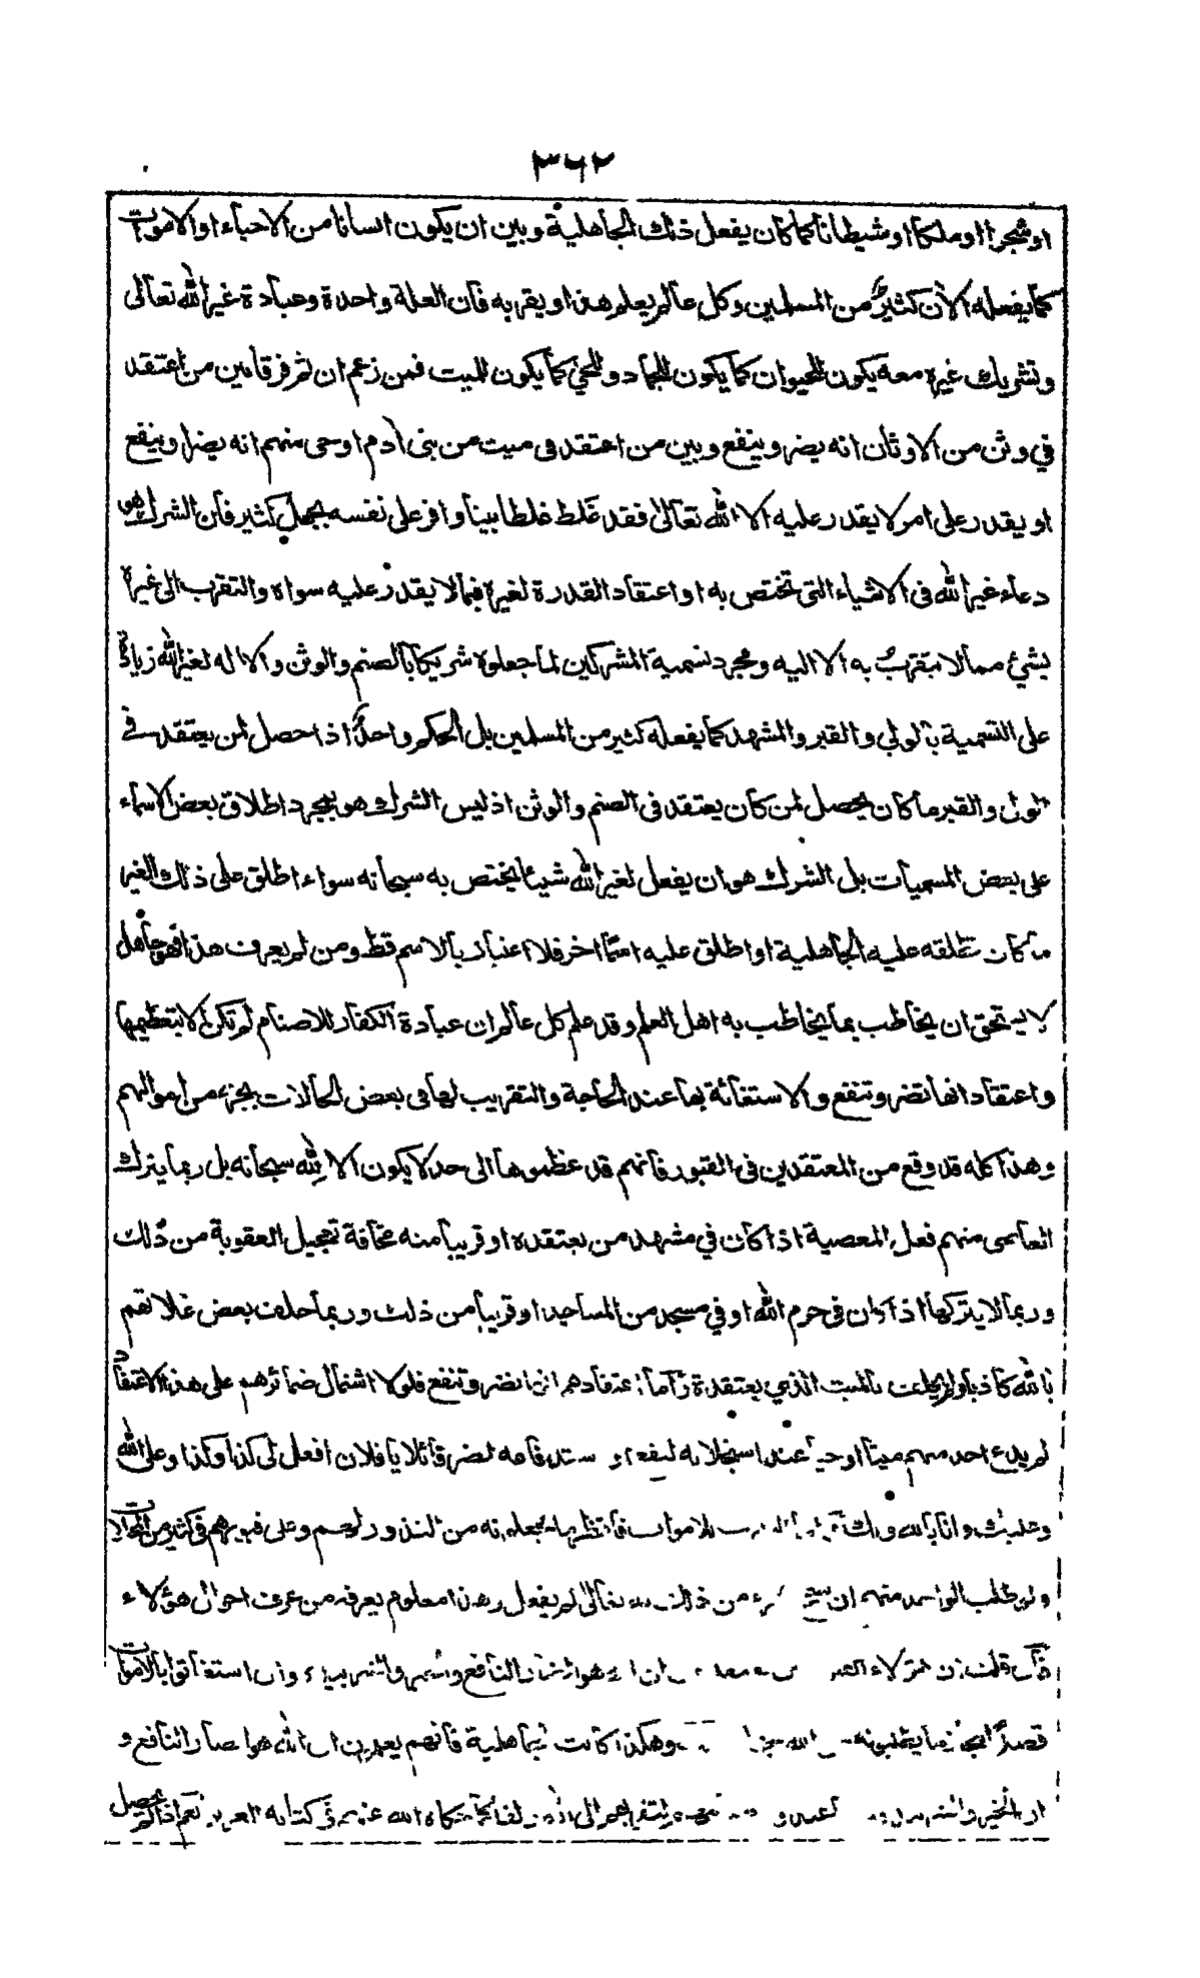 ٣٦٢
او شجرا او ملكا او شيطانا كما كان يفعل ذلك الجاهلية وبين ان يكون انسانا من الاحياء او الاموات
كما يفعله الآن كثيرٌ من المسلمين وكل عالم يعلم هذا ويقر به فان العلة واحدة وعبادة غير الله تعالى
وتشريك غيره معه يكون للحيوان كما يكون للجماد وللحي كما يكون للميت فمن زعم ان ثم فرقا بين من اعتقد
في وثن من الاوثان انه يضر وينفع وبين من اعتقد في ميت من بنى ادم او حى منهم انه يضر او ينفع
او يقدر على امر لا يقدر عليه الا الله تعالى فقد غلط غلطا بينا واقر على نفسه بجهل كثير فان الشرك هو
دعاء غير الله فى الاشياء التى تختص به او اعتقاد القدرة لغيره فيما لا يقدر عليه سواه والتقرب الى غيره
بشئ مما لا يتقرب به الا اليه ومجرد تسمية المشركين لما جعلوه شريكا بالصنم والوثن والاله لغير الله زيادة
على التسمية بالولي والقبر والمشهد كما يفعله كثير من المسلمين بل الحكم واحدٌ اذا حصل لمن يعتقد في
الولى والقبر ما كان يحصل لمن كان يعتقد فى الصنم والوثن اذ ليس الشرك هو بمجرد اطلاق بعض الاسماء
على بعض المسميات بل الشرك هو ان يفعل لغير الله شيئا يختص به سبحانه سواء اطلق على ذلك الغير
ما كان تطلقه عليه الجاهلية او اطلق عليه اسمًا اخر فلا اعتبار بالاسم قط ومن لم يعرف هذا فهو جاهل
لا يستحق ان يخاطب بما يخاطب به اهل العلم وقد علم كل عالم ان عبادة الكفار للاصنام لم تكن الا بتعظيمها
واعتقاد انها تضر وتنفع والاستغاثة بها عند الحاجة والتقريب لها فى بعض الحالات بجزء من اموالهم
وهذا كله قد وقع من المعتقدين فى القبور فانهم قد عظموها الى حد لا يكون الا لله سبحانه بل ربما يترك
العاصى منهم فعل المعصية اذا كان في مشهد من يعتقده او قريبا منه مخافة تعجيل العقوبة من ذلك
وربما لا يتركها اذا كان فى حرم الله او في مسجد من المساجد او قريبا من ذلك وربما حلف بعض غلاتهم
بالله كاذبا ولم يحلف بالميت الذي يعتقده واما اعتقادهم انها تضر وتنفع فلولا اشتمال ضمائرهم على هذا الاعتقاد
لم يدع احد منهم ميتا او حيا عند استجلابه لنفع او استدفاعه لضر قائلا يا فلان افعل لى كذا وكذا وعلى الله
وعليك وانا بالله وبك للاموات فانظر ما يجعلونه من النذور لهم وعلى قبورهم فى كثير من المحلات
ولو طلب الواحد منهم ان من ذلك لله تعالى لم يفعل وهذا معلوم يعرفه من عرف احوال هؤلاء
فان قلت ان هؤلاء ان الله هو الضار النافع والخير والشر بيده وان استغاثوا بالاموات
قصدٌ الله وهكذا كانت الجاهلية فانهم يعلمون ان الله هو الضار النافع و
ان الخير والشر بيده الى الله زلفى كما حكاه الله عنهم فى كتابه العزيز نعم اذا لم يحصل